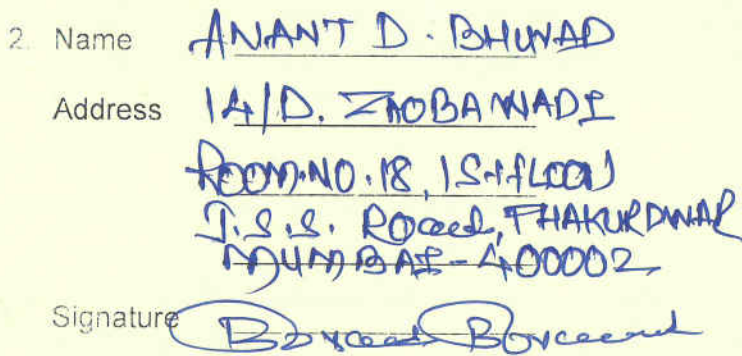 2. Name ANANT D. BHUVAD
Address 14/D. ZAOBAWADI
ROOM.NO.18, 1St fLOOR
J.S.S. Road, THAKURDWAR
MUMBAI-400002
Signature